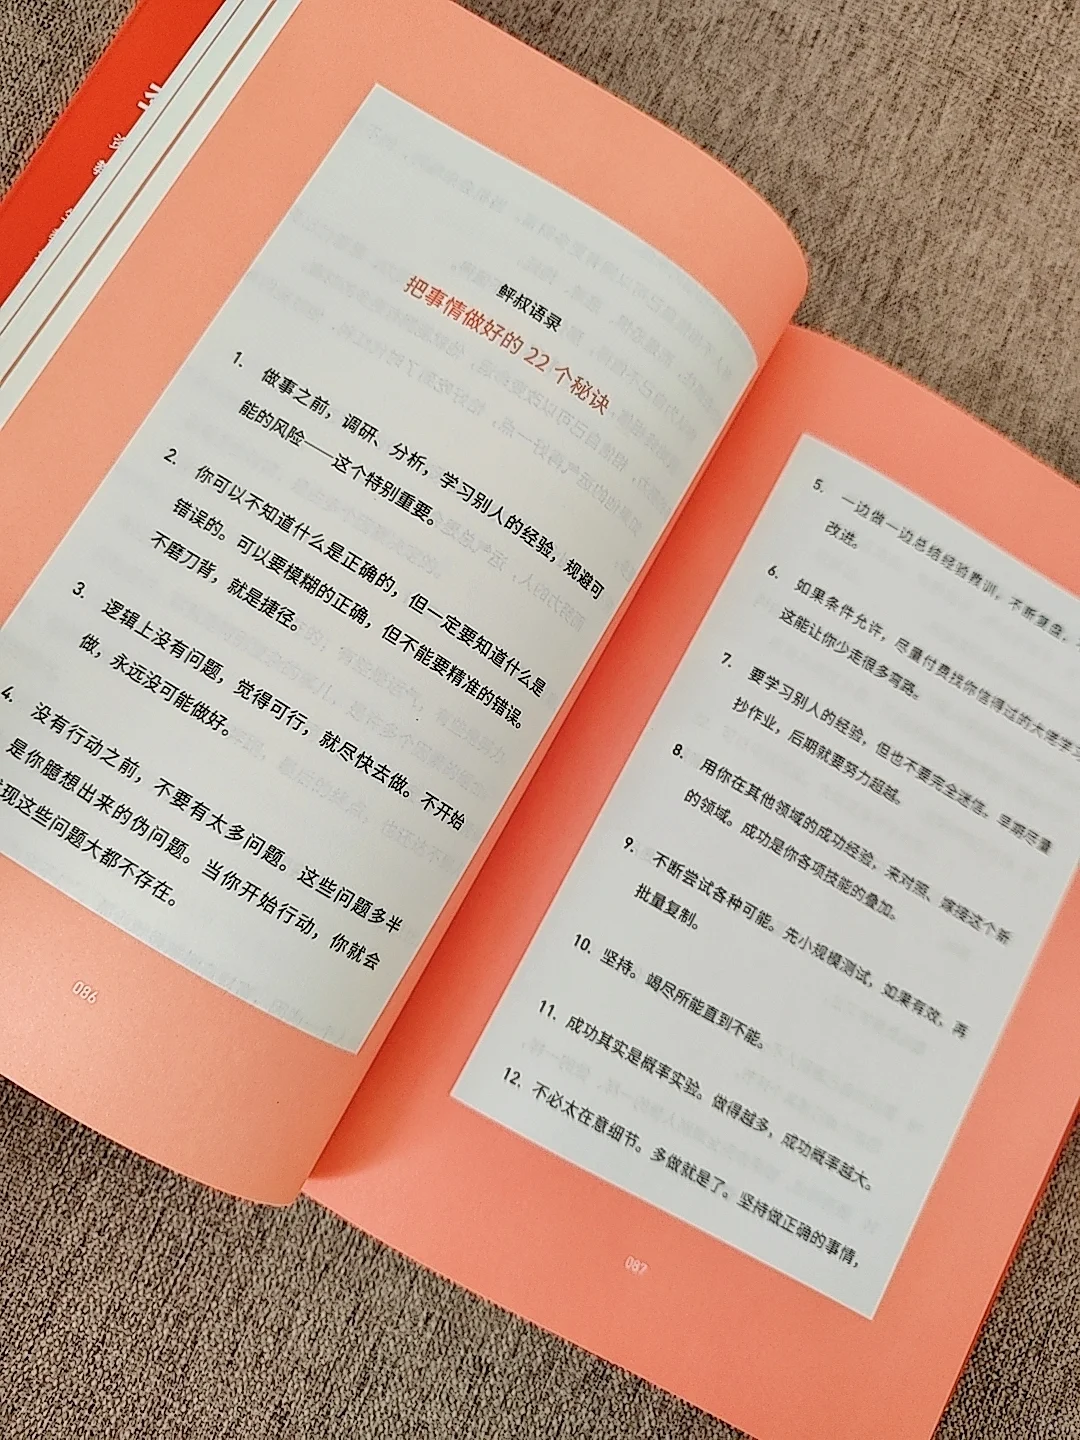 鲆叔语录
把事情做好的 22 个秘诀
1. 做事之前，调研、分析，学习别人的经验，规避可
能的风险——这个特别重要。
2. 你可以不知道什么是正确的，但一定要知道什么是
错误的。可以要模糊的正确，但不能要精准的错误。
不磨刀背，就是捷径。
3. 逻辑上没有问题，觉得可行，就尽快去做。不开始
做，永远没可能做好。
4. 没有行动之前，不要有太多问题。这些问题多半
是你臆想出来的伪问题。当你开始行动，你就会
现这些问题大都不存在。
086
5. 一边做一边总结经验教训，不断复盘，
改进。
6. 如果条件允许，尽量付费找你信得过的大佬学习
这能让你少走很多弯路。
7. 要学习别人的经验，但也不要完全迷信。早期尽量
抄作业，后期就要努力超越。
8. 用你在其他领域的成功经验，来对照、嫁接这个新
的领域。成功是你各项技能的叠加。
9. 不断尝试各种可能。先小规模测试，如果有效，再
批量复制。
10. 坚持。竭尽所能直到不能。
11. 成功其实是概率实验。做得越多，成功概率越大。
12. 不必太在意细节。多做就是了。坚持做正确的事情，
087